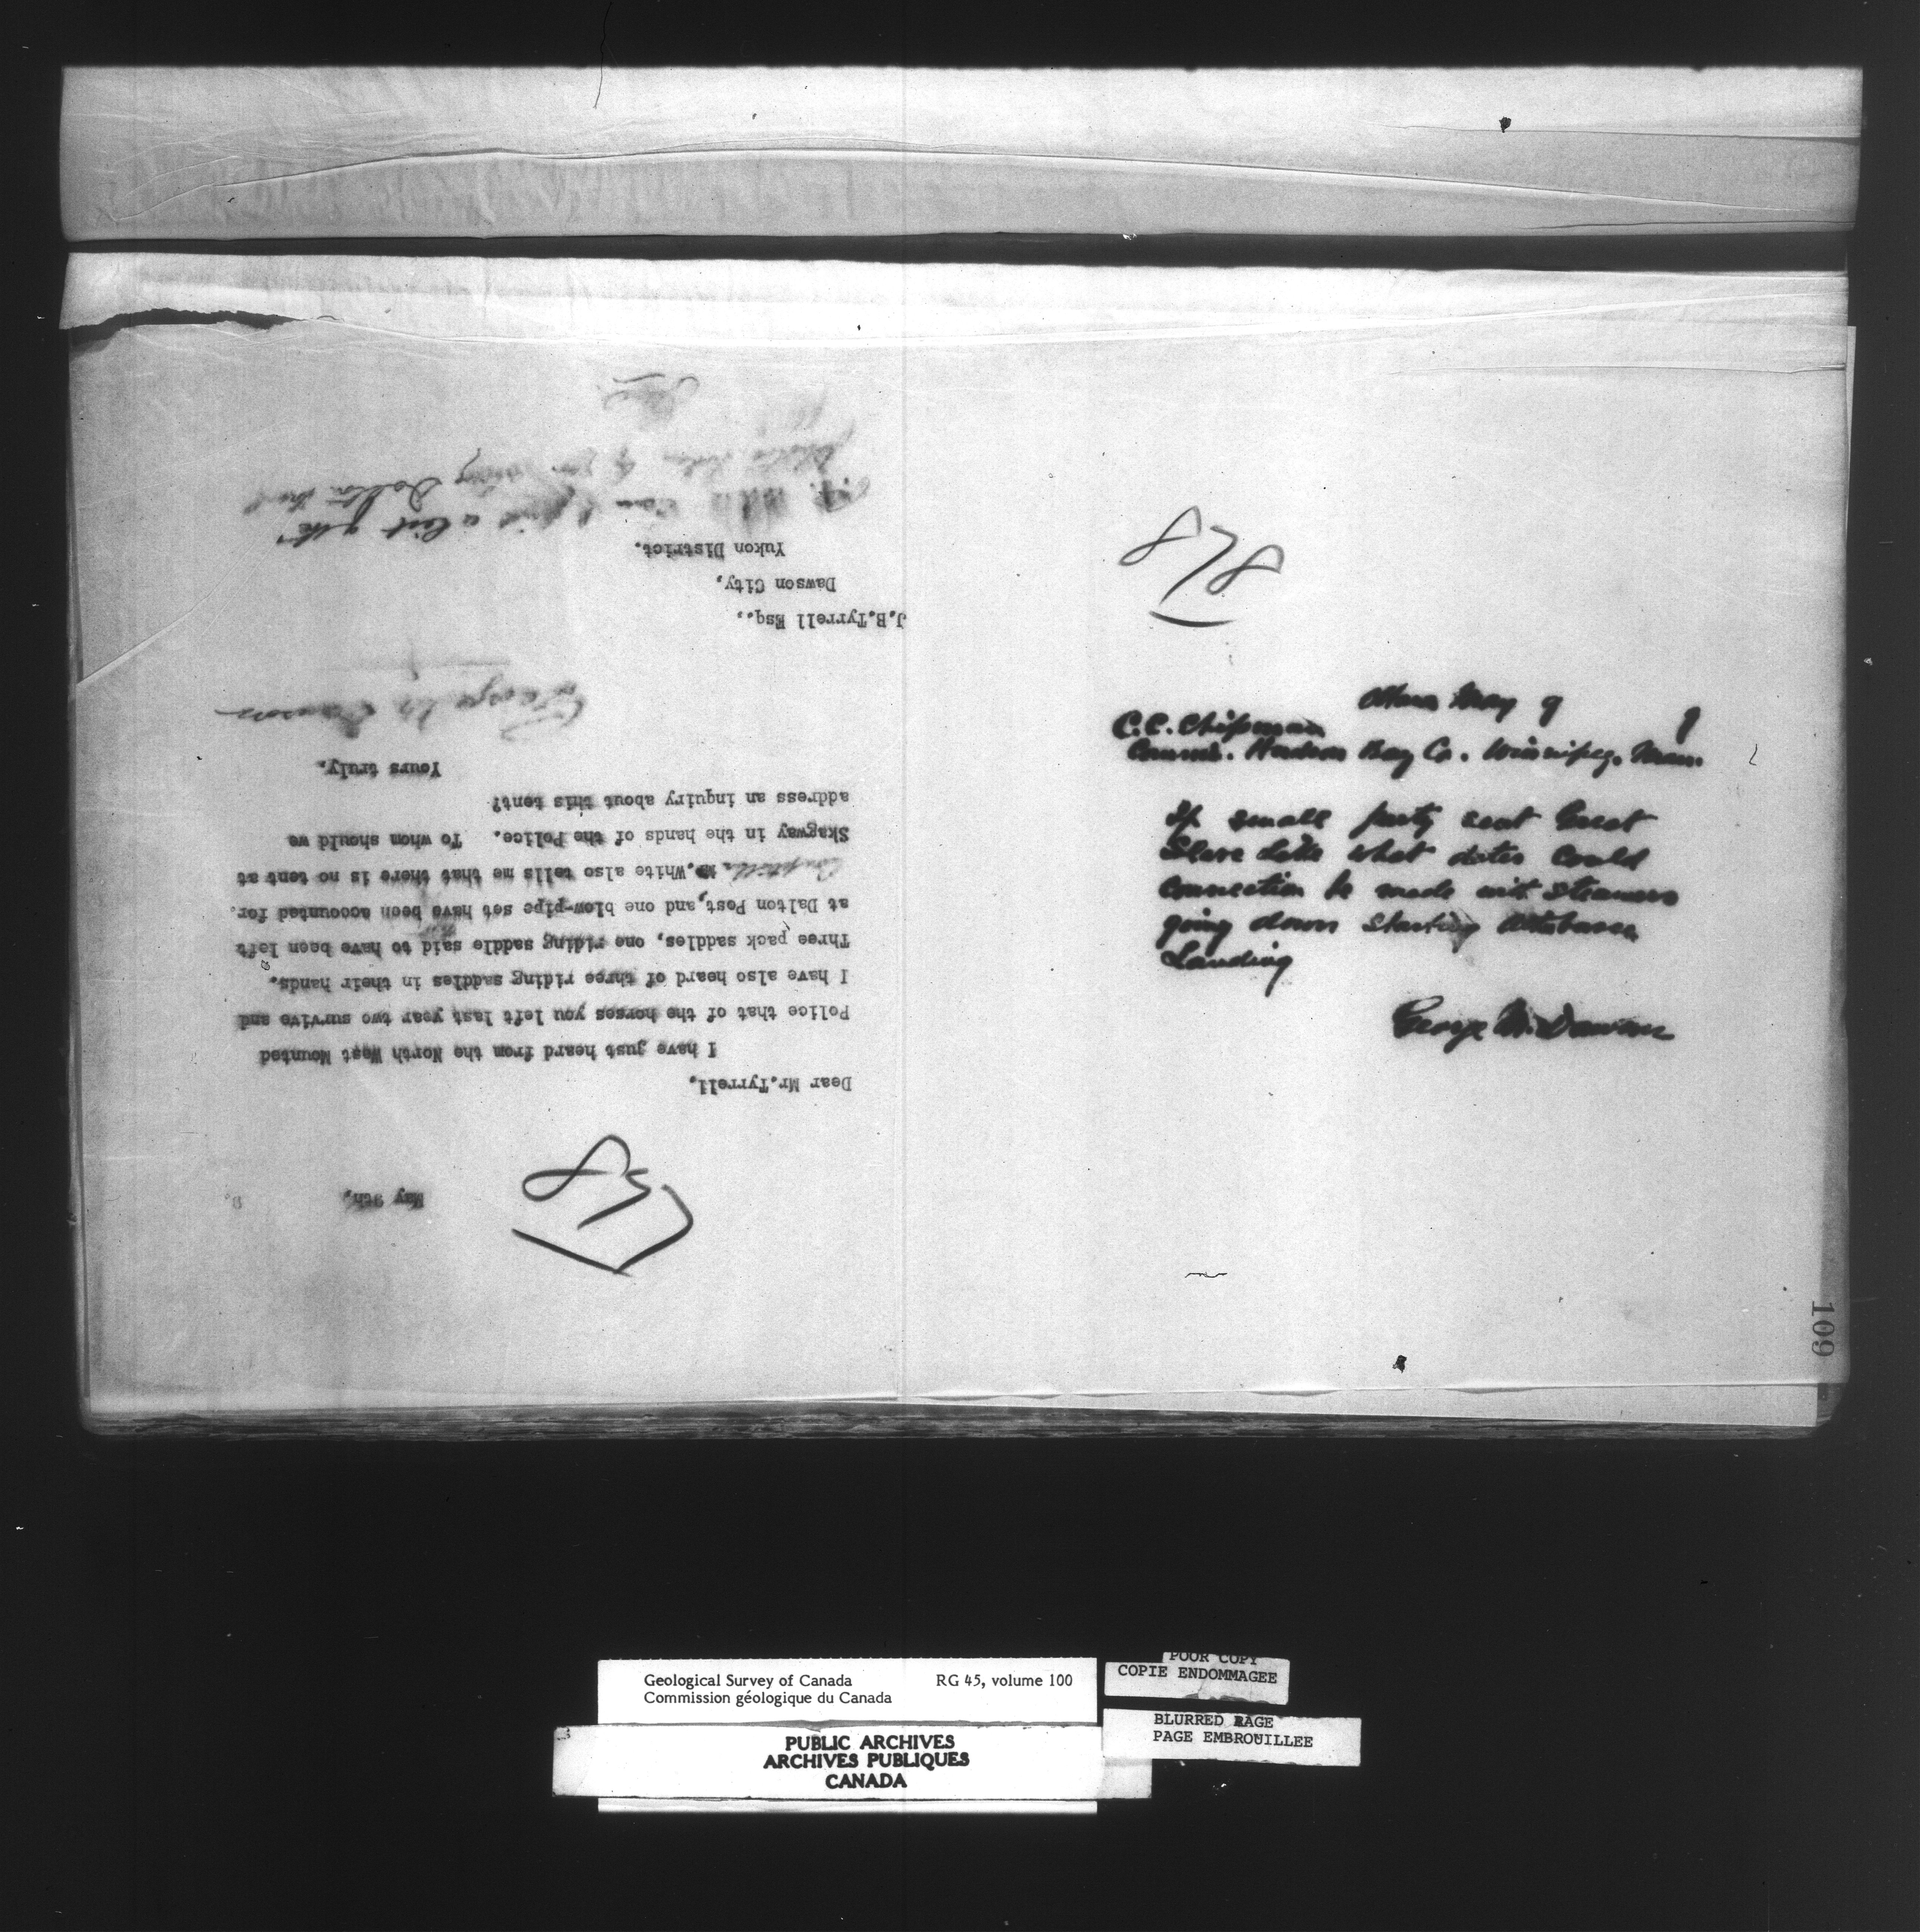 837
May 9th, 9.
Dear Mr. Tyrrell,
I have just heard from the North West Mounted
Police that of the horses you left last year two survive and
I have also heard of three riding saddles in their hands.
Three pack saddles, one riding saddle said to have been left
at Dalton Post, and one blow-pipe set have been accounted for.
Comptroller White also tells me that there is no tent at
Skagway in the hands of the Police. To whom should we
address an inquiry about this tent?
Yours truly,
George M. Dawson
J.B.Tyrrell Esq.,
Dawson City,
Yukon District.
a list of the
Dalton trail
878
Ottawa May 9 9
C.C. Chipman
Commr. Hudson Bay Co. Winnipeg. Man.
If small party sent Great
Slave Lake what dates could
connection be made with steamers
going down starting Athabasca
Landing
George M. Dawson
109
Geological Survey of Canada RG 45, volume 100
Commission géologique du Canada
PUBLIC ARCHIVES
ARCHIVES PUBLIQUES
CANADA
POOR COPY
COPIE ENDOMMAGEE
BLURRED PAGE
PAGE EMBROUILLEE